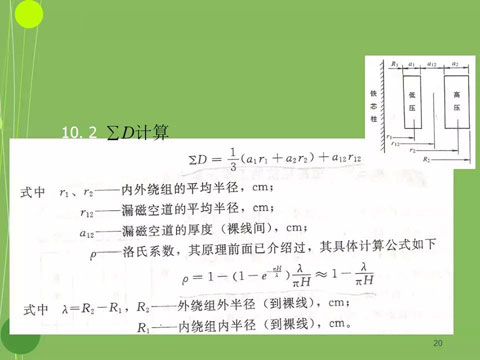 R₁ a₁ a₁₂ a₂
铁芯柱
低压
高压
r₁
r₁₂
r₂
R₂
10. 2 ∑D计算
ΣD = 1/3 (a₁r₁ + a₂r₂) + a₁₂r₁₂
式中 r₁、r₂——内外绕组的平均半径，cm；
r₁₂——漏磁空道的平均半径，cm；
a₁₂——漏磁空道的厚度（裸线间），cm；
ρ——洛氏系数，其原理前面已介绍过，其具体计算公式如下
ρ = 1 - (1 - e^(-πH/λ)) λ/πH ≈ 1 - λ/πH
式中 λ = R₂ - R₁，R₂——外绕组外半径（到裸线），cm；
R₁——内绕组内半径（到裸线），cm。
20